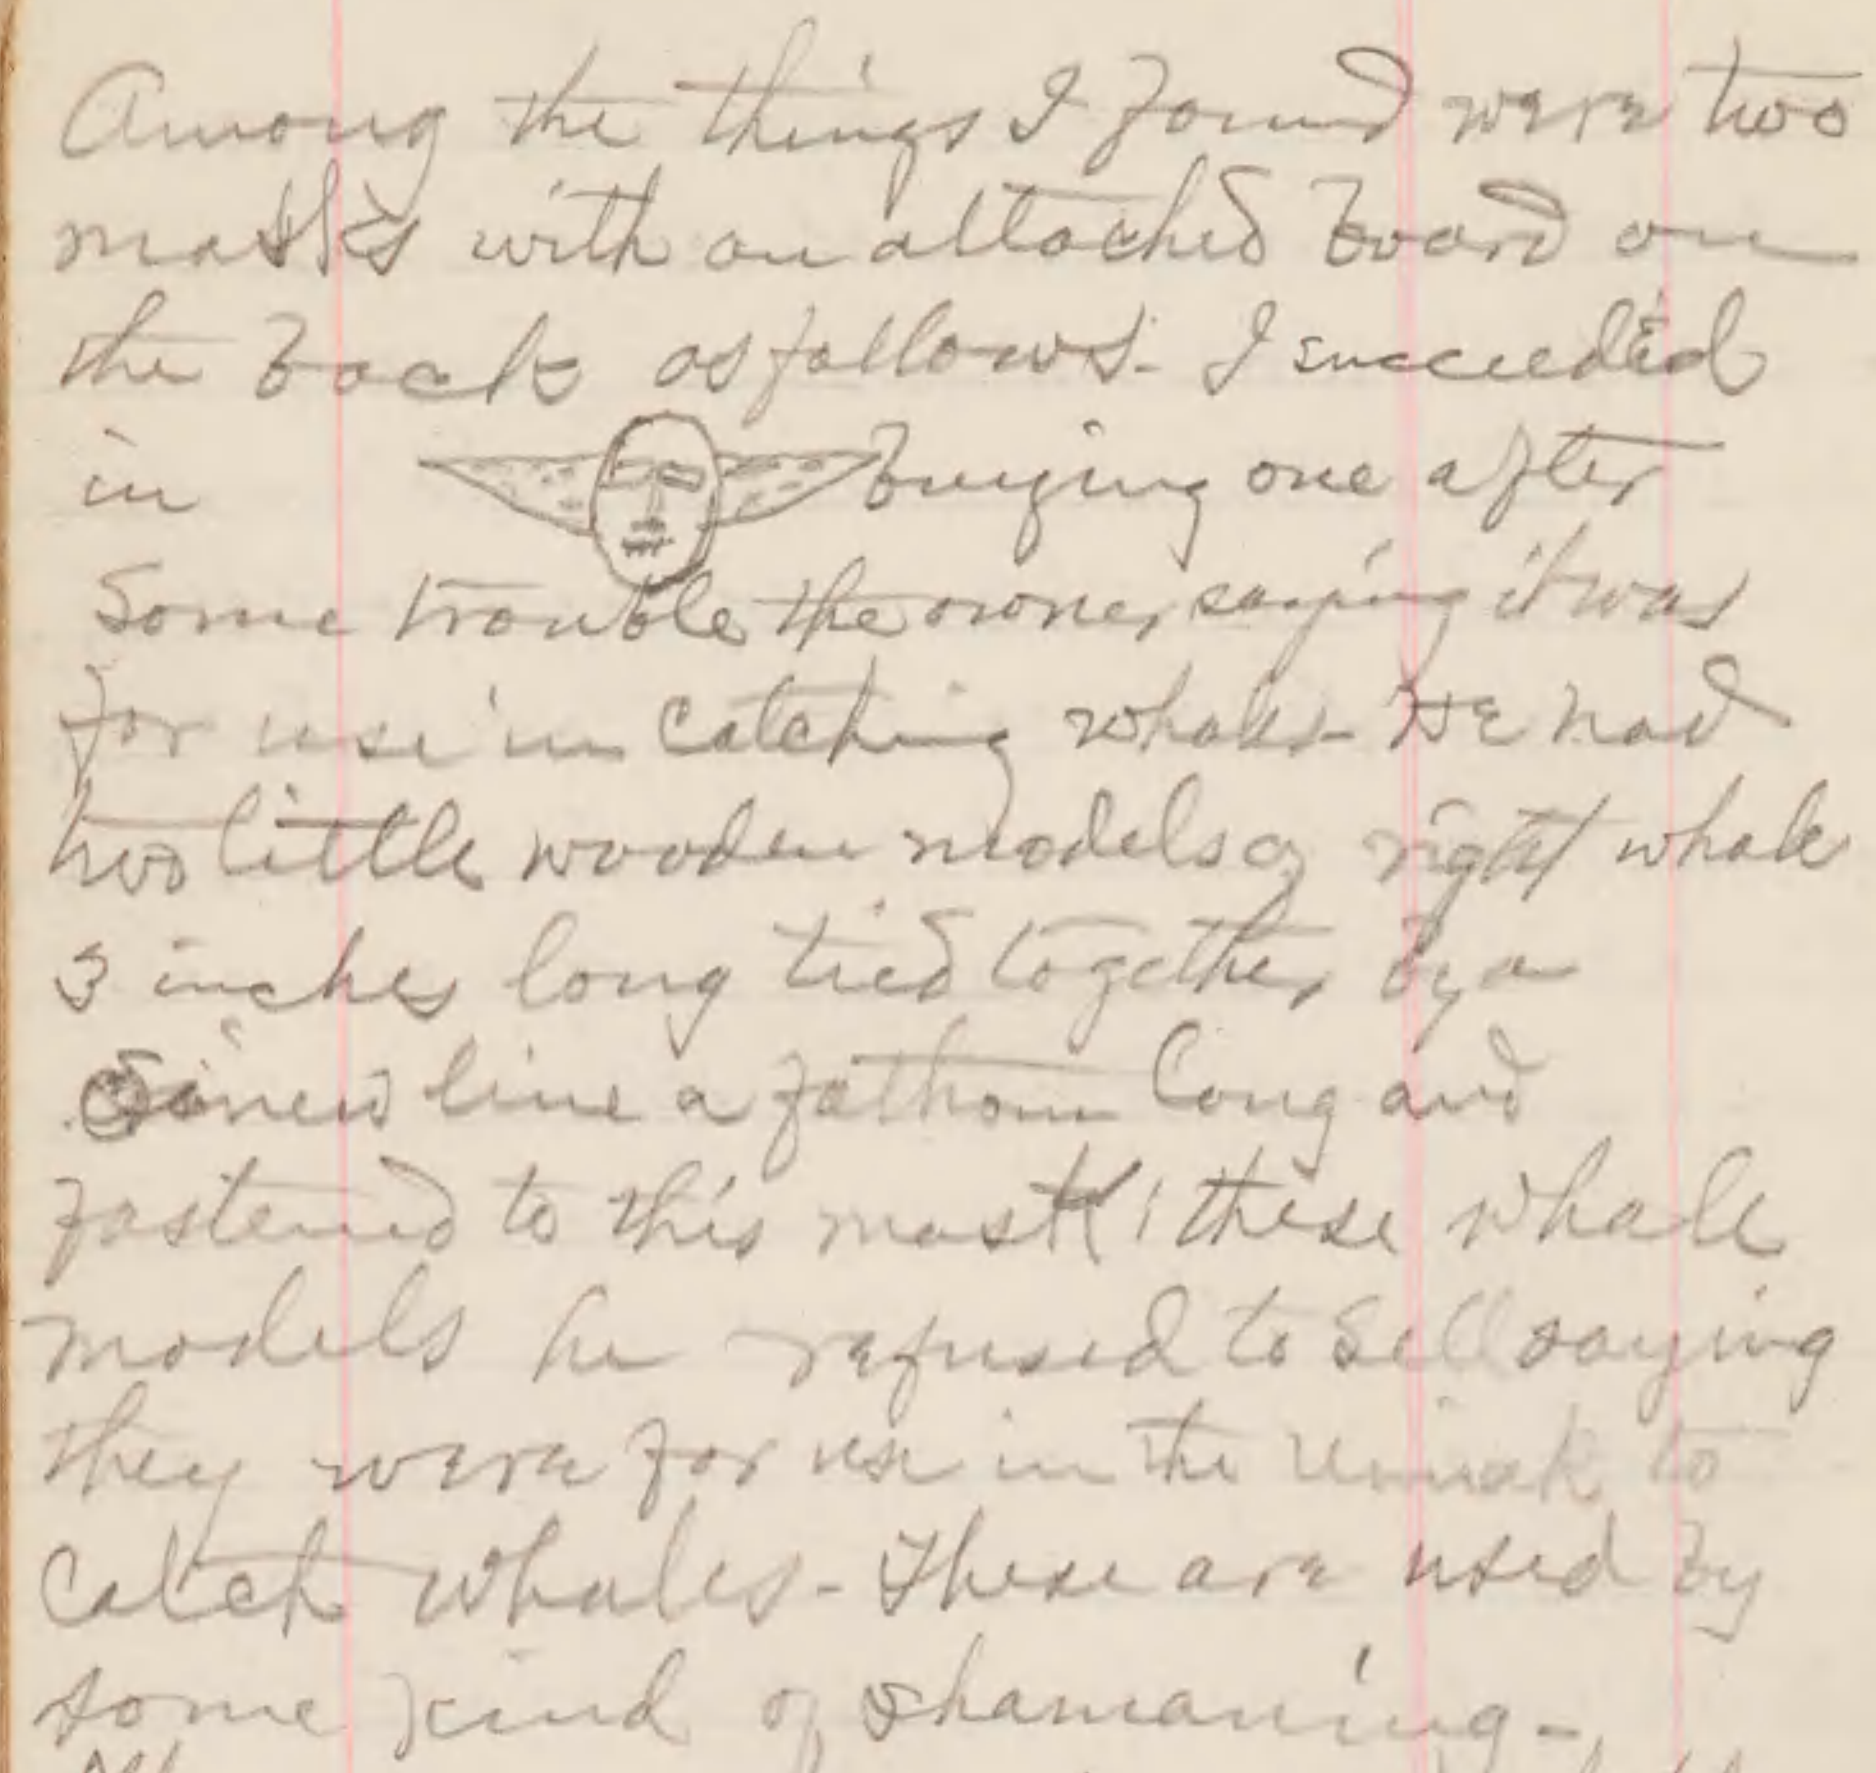 Among the things I found were two
masks with an attached board on
the back as follows. I succeeded
in buying one after
some trouble the owner saying it was
for use in catching whales - He had
two little wooden models of right whale
3 inches long tied together by a
Sinew line a fathom long and
fastened to this mask; these whale
models he refused to sell saying
they were for use in the Umiak to
catch whales - These are used by
some kind of shamaning -